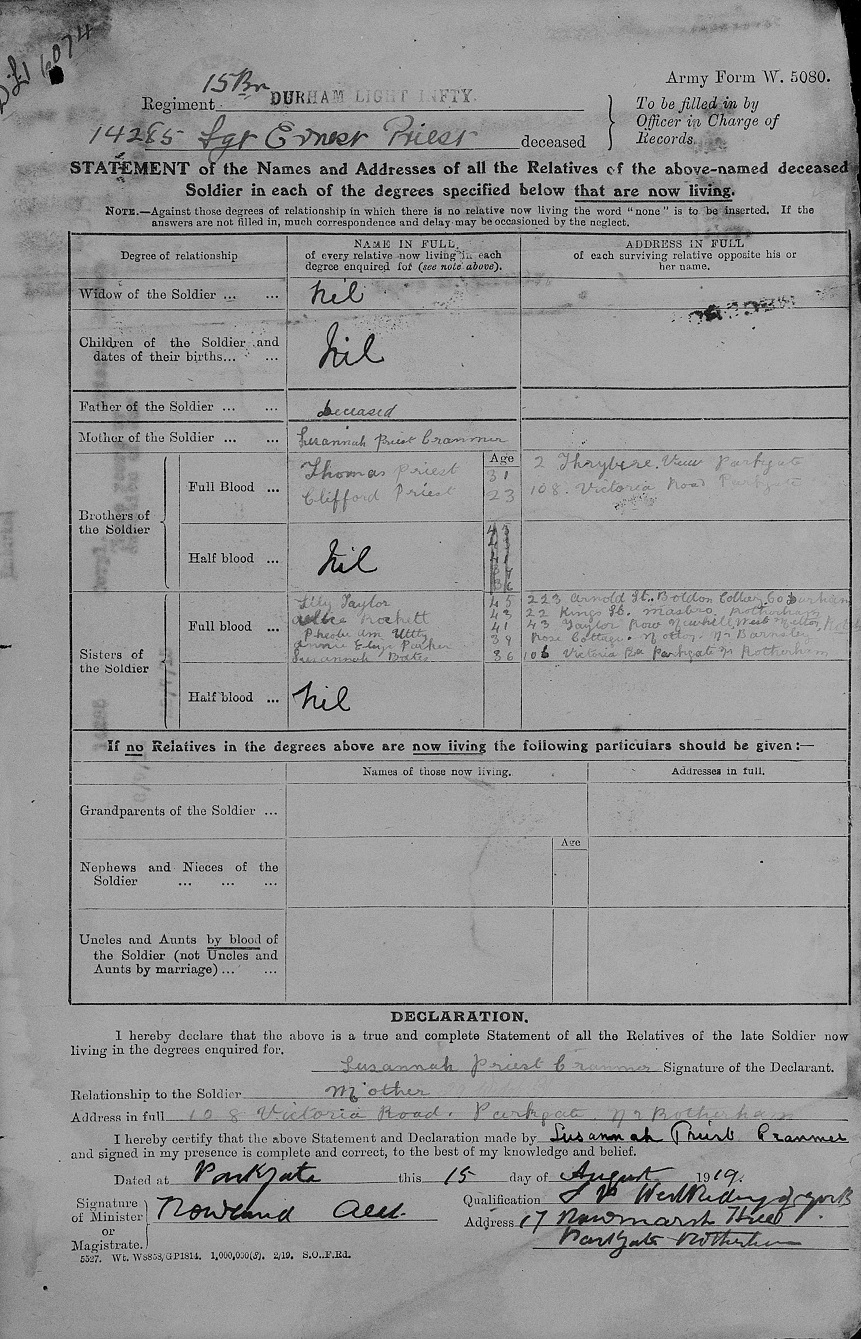 15 Bn
Army Form W. 5080.
Regiment DURHAM LIGHT INFTY.
To be filled in by
Officer in Charge of
Records.
14285 Sgt Ernest Priest deceased
STATEMENT of the Names and Addresses of all the Relatives of the above-named deceased
Soldier in each of the degrees specified below that are now living.
NOTE.—Against those degrees of relationship in which there is no relative now living the word "none" is to be inserted. If the
answers are not filled in, much correspondence and delay may be occasioned by the neglect.
Degree of relationship
NAME IN FULL
of every relative now living in each
degree enquired for (see note above).
ADDRESS IN FULL
of each surviving relative opposite his or
her name.
Widow of the Soldier ... ... Nil
Children of the Soldier and
dates of their births... ... Nil
Father of the Soldier ... ... Deceased
Mother of the Soldier ... ... Susannah Priest Cranmer
Age
Brothers of
the Soldier
Full Blood ...
Thomas Priest 31 2 Thrybere View Parkgate
Clifford Priest 23 108. Victoria Road Parkgate
Half blood ... Nil
43
41
36
Sisters of
the Soldier
Full blood ...
Lily Taylor 45 223 Arnold St. Boldon Colliery Co Durham
Rockett 43 22 Kings St. Masbro. Rotherham
Pheobe Ann Utley 41 43 Taylor Row Newhill West Melton
Annie Eliza Parker 39 Rose Cottage. Nr Barnsley
Susannah Bates 36 106 Victoria Rd Parkgate Nr Rotherham
Half blood ... Nil
If no Relatives in the degrees above are now living the following particulars should be given:—
Names of those now living. Addresses in full.
Grandparents of the Soldier ...
Age
Nephews and Nieces of the
Soldier ... ... ...
Uncles and Aunts by blood of
the Soldier (not Uncles and
Aunts by marriage) ... ...
DECLARATION.
I hereby declare that the above is a true and complete Statement of all the Relatives of the late Soldier now
living in the degrees enquired for.
Susannah Priest Cranmer Signature of the Declarant.
Relationship to the Soldier Mother
Address in full 108 Victoria Road. Parkgate. Nr Rotherham
I hereby certify that the above Statement and Declaration made by Susannah Priest Cranmer
and signed in my presence is complete and correct, to the best of my knowledge and belief.
Dated at Parkgate this 15 day of August 1919.
Signature
of Minister
or
Magistrate.
Rowland
Qualification J P West Riding of York
Address 17 Rawmarsh Hill
Parkgate Rotherham
5527. Wt. W8858/GP1814. 1,000,000(S). 2/19. S.O.,F.Rd.